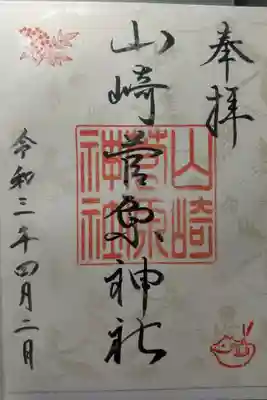 奉拝
山崎菅原神社
山崎菅原神社
令和三年四月二日